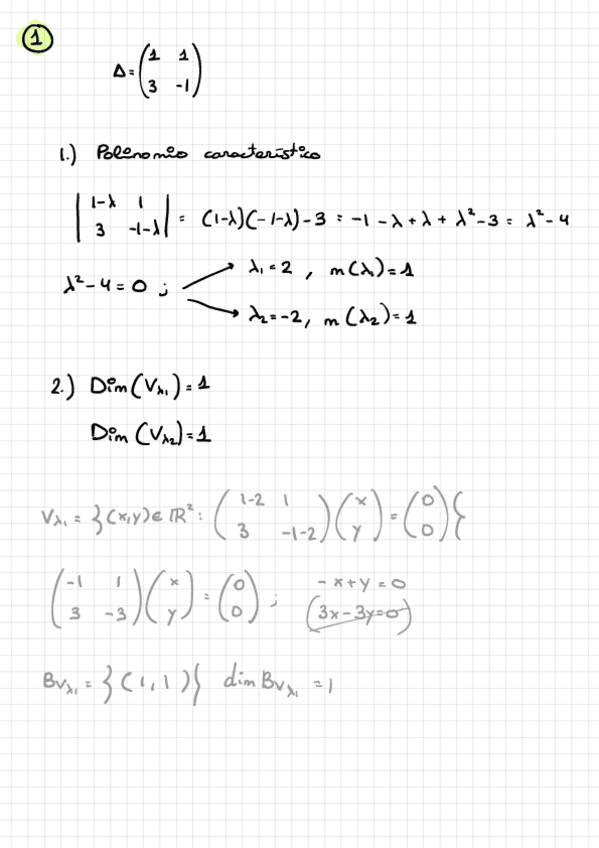 1
Δ = ( 1 1
3 -1 )
1.) Polinomio característico
| 1-λ 1
3 -1-λ | = (1-λ)(-1-λ)-3 = -1 - λ + λ + λ² - 3 = λ² - 4
λ² - 4 = 0 ; λ₁ = 2 , m(λ₁) = 1
λ₂ = -2, m(λ₂) = 1
2.) Dim(Vλ₁) = 1
Dim (Vλ₂) = 1
Vλ₁ = }(x,y) ∈ ℝ² : ( 1-2 1
3 -1-2 ) ( x
y ) = ( 0
0 ) {
( -1 1
3 -3 ) ( x
y ) = ( 0
0 ) ; -x+y=0
(3x-3y=0)
Bvλ₁ = }(1,1){ dim Bvλ₁ = 1